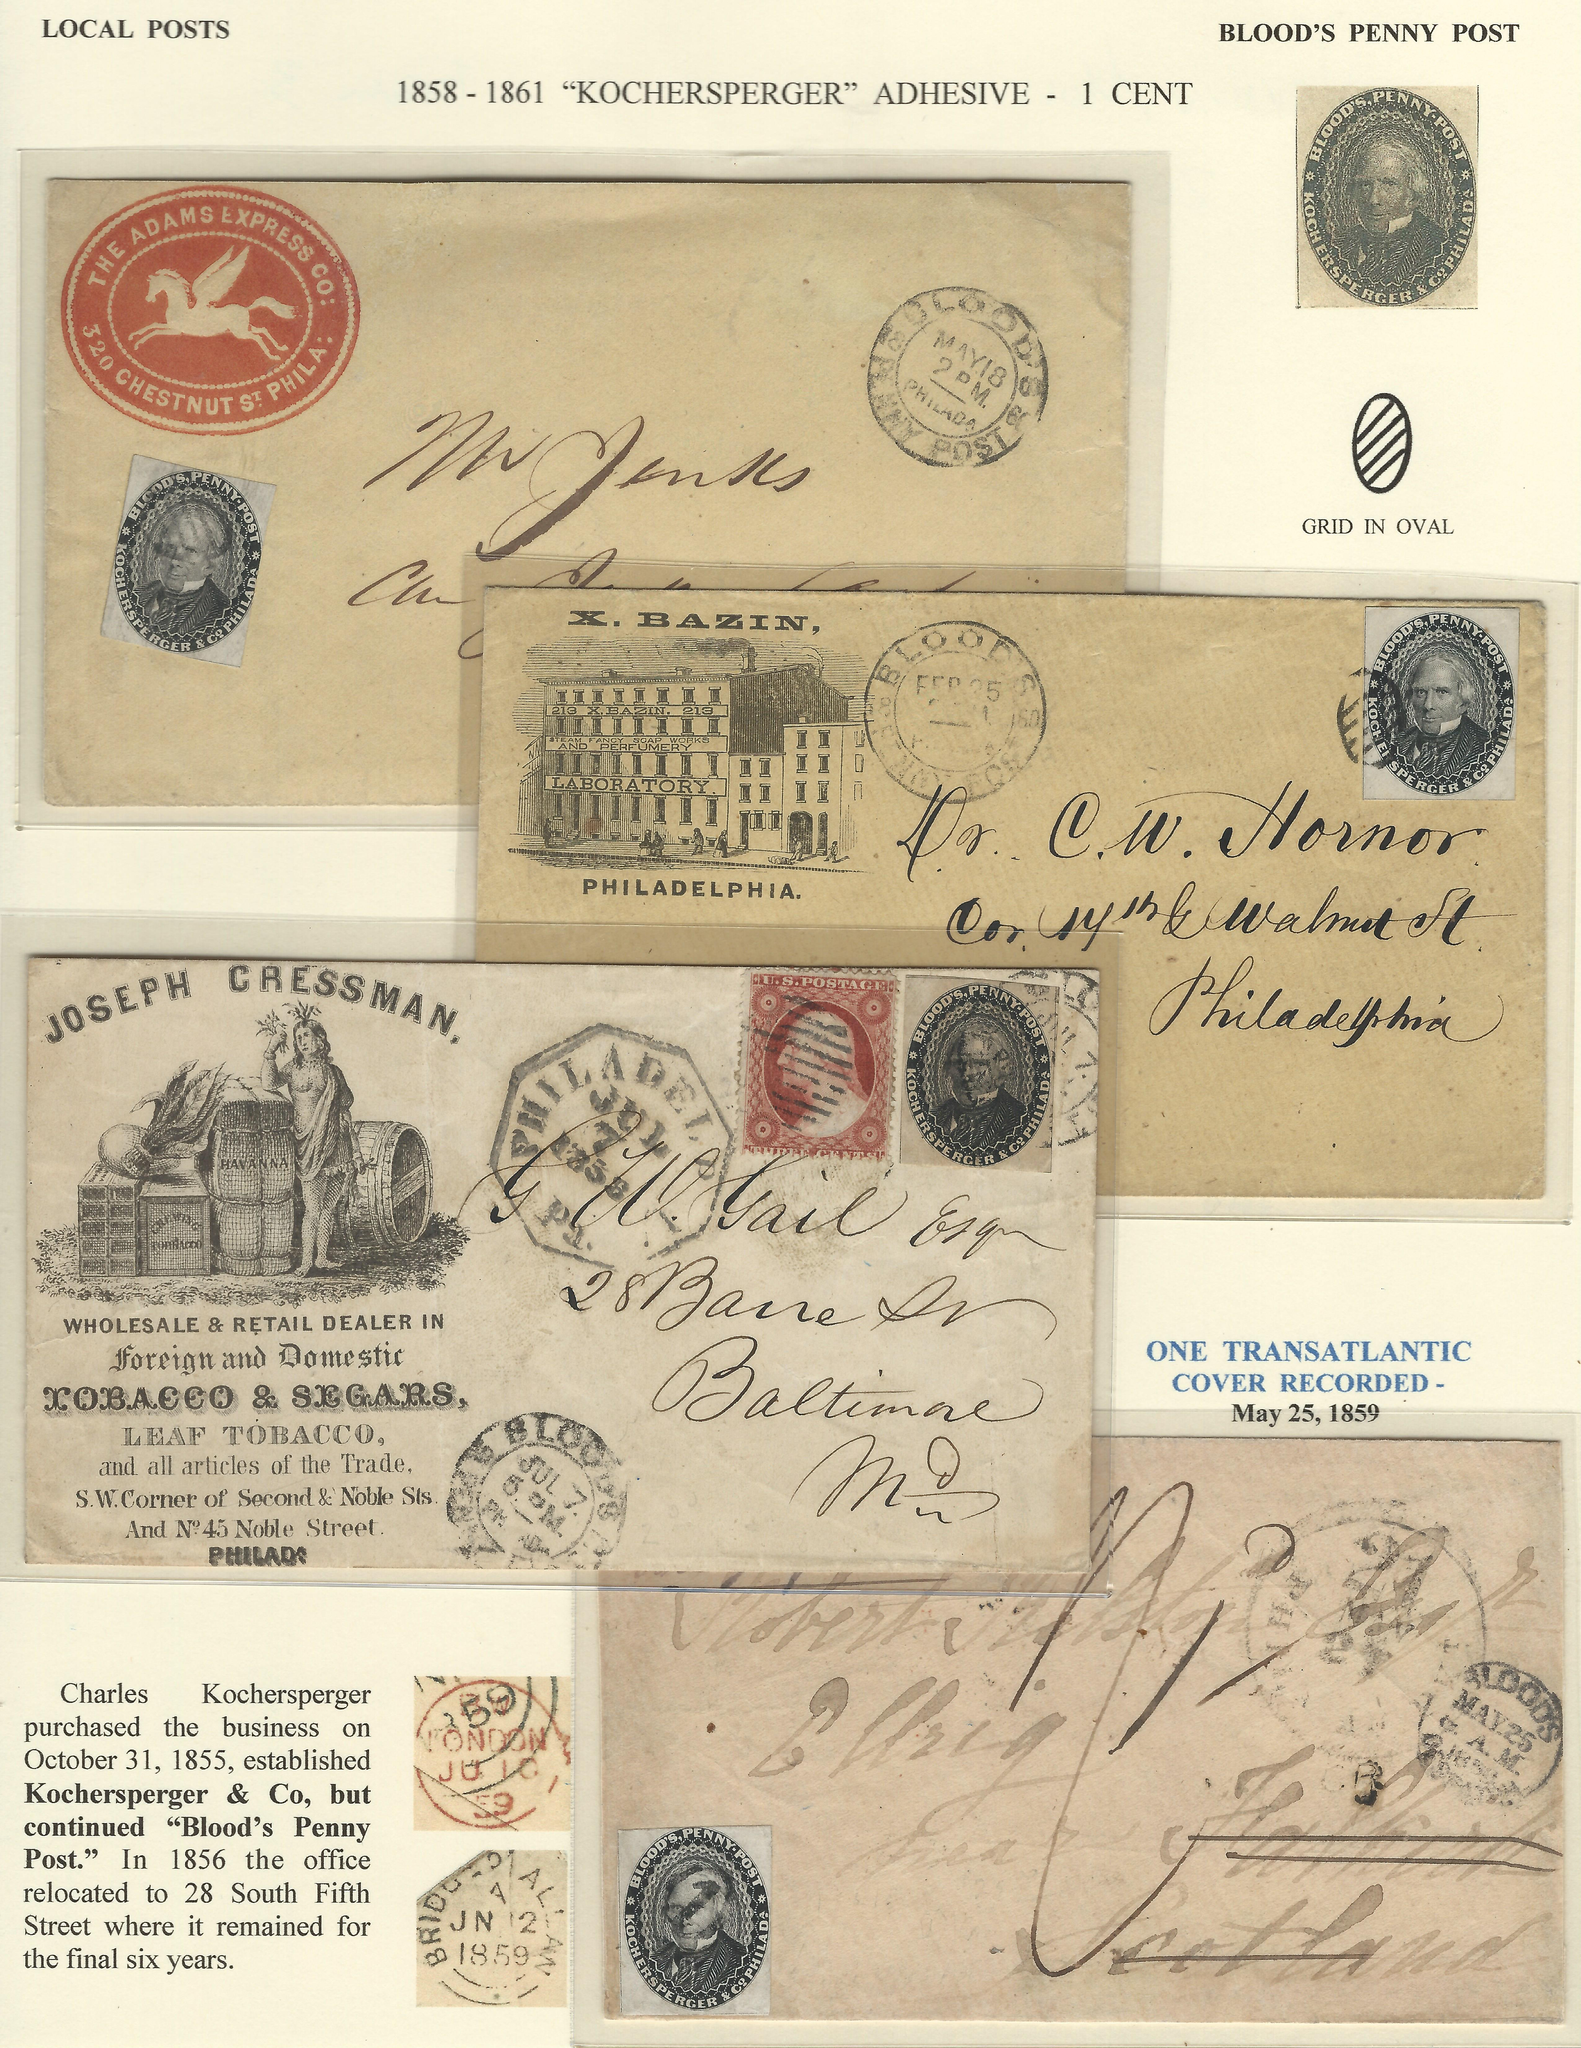 LOCAL POSTS
BLOOD'S PENNY POST
1858 - 1861 "KOCHERSPERGER" ADHESIVE - 1 CENT
BLOOD'S, PENNY-POST
KOCHERSPERGER & Co PHILADA
THE ADAMS EXPRESS CO:
320 CHESTNUT ST PHILA:
BLOOD'S
MAY 18
2 P.M.
PHILADA
PENNY POST
BLOOD'S, PENNY-POST
KOCHERSPERGER & Co PHILADA
Mr Jenks
GRID IN OVAL
X. BAZIN,
213 X. BAZIN. 213
STEAM FANCY SOAP WORKS
AND PERFUMERY
LABORATORY.
PHILADELPHIA.
BLOOD'S
FEB 25
BLOOD'S, PENNY-POST
KOCHERSPERGER & Co PHILADA
Dr. C. W. Hornor
Cor. 14th & Walnut St
Philadelphia
JOSEPH CRESSMAN,
HAVANNA
TOBACCO
WHOLESALE & RETAIL DEALER IN
Foreign and Domestic
TOBACCO & SEGARS,
LEAF TOBACCO,
and all articles of the Trade,
S.W. Corner of Second & Noble Sts.
And No 45 Noble Street.
PHILADA
PHILADEL
JUL
1858
PA.
U.S. POSTAGE
THREE CENTS
BLOOD'S, PENNY-POST
KOCHERSPERGER & Co PHILADA
JUL 7
G. W. Gail Esqr
28 Barre St
Baltimore
Md
BLOOD'S
JUL 7
5 PM
ONE TRANSATLANTIC
COVER RECORDED -
May 25, 1859
Robert
Scotland
BLOOD'S
MAY 25
A.M.
BLOOD'S, PENNY-POST
KOCHERSPERGER & Co PHILADA
Charles Kochersperger
purchased the business on
October 31, 1855, established
Kochersperger & Co, but
continued "Blood's Penny
Post." In 1856 the office
relocated to 28 South Fifth
Street where it remained for
the final six years.
LONDON
JU 10
59
JN 12
1859